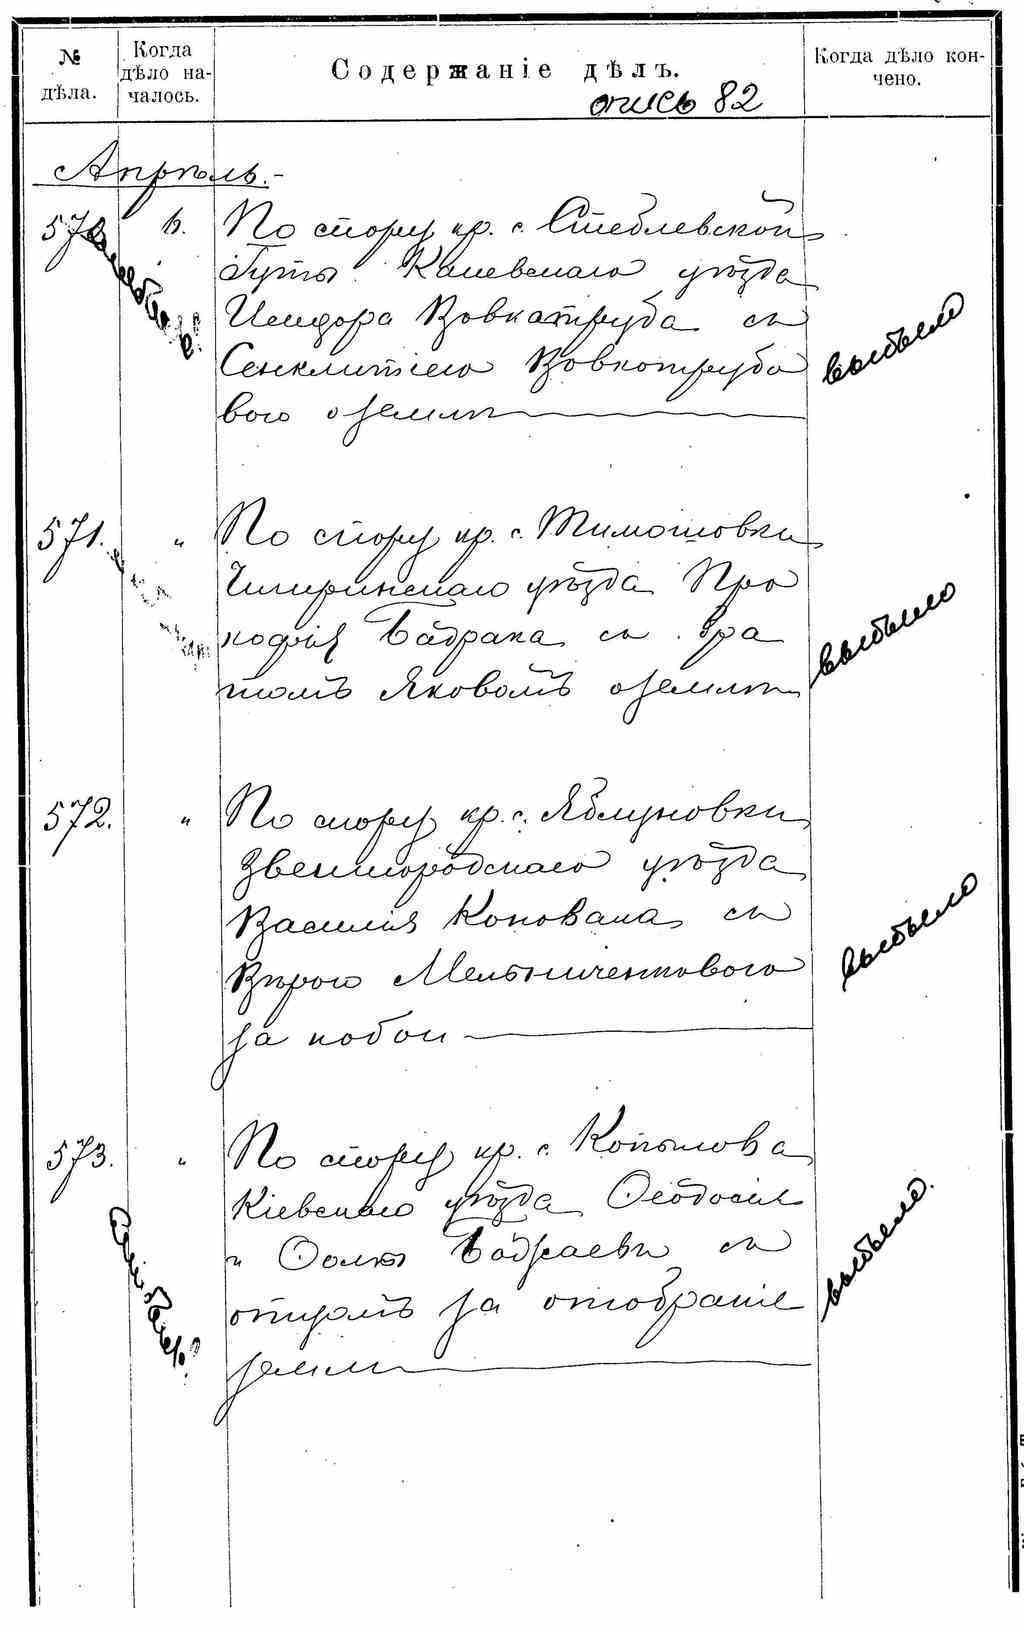 № дѣла.
Когда дѣло на-
чалось.
Содержаніе дѣлъ.
Когда дѣло кон-
чено.
опись 82
Апрѣль.-
570 6. По спору кр. с. Стеблевской
Гуты Каневскаго уѣзда
Исидора Вовкатруба съ
Сенклитіею Вовкотрубо
вою о землѣ
выбыло
571. " По спору кр. с. Тимошовки
Чигиринскаго уѣзда Про
кофія Бадрака съ бра
томъ Яковомъ о землѣ
выбыло
572. " По спору кр. с. Яблуновки
Звенигородскаго уѣзда
Василія Коновала съ
Вѣрою Мельниченковою
за побои
выбыло
573. " По спору кр. с. Копылова
Кіевскаго уѣзда Ѳеодосія
и Ѳомы съ
отцомъ за отобраніе
земли
выбыло.